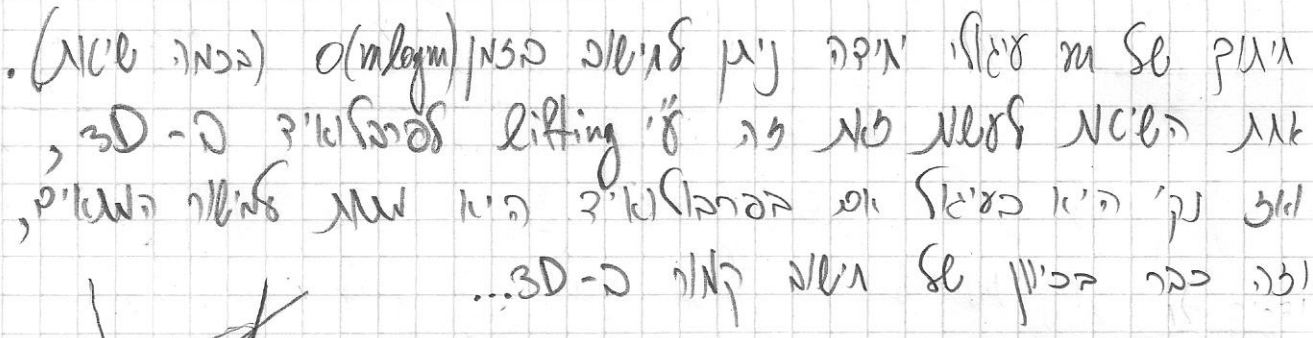 חיתוך של m עיגולי יחידה ניתן לחישוב בזמן O(mlogm) (בכמה שיטות).
אחת השיטות לעשות זאת זה ע"י lifting לפרבולואיד ב-3D,
ואז נק' היא בעיגול אם בפרבולואיד היא מתחת למישור המתאים,
וזה כבר בכיוון של חישוב קמור ב-3D...